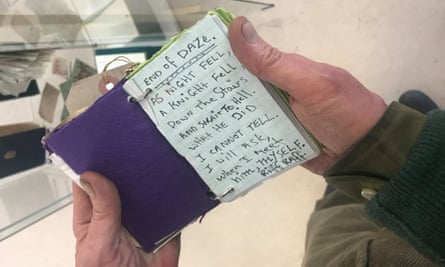 END OF DAZE.
AS NIGHT FELL,
A KNIGHT FELL
DOWN THE STAIRS
AND TO HELL.
WHAT HE DID
I CANNOT TELL.
I WILL ASK,
WHEN I MEET
him, MYSELF.